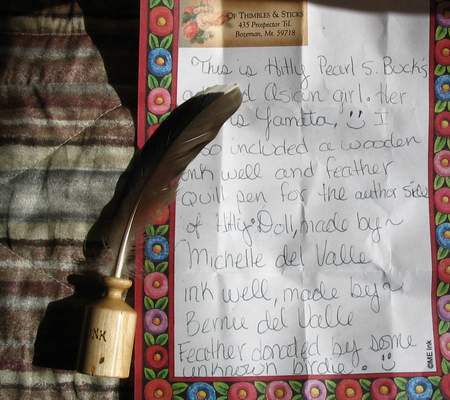 OF THIMBLES & STICKS
435 Prospector Trl.
Bozeman, Mt. 59718
This is Hitty Pearl S. Buck's
Asian girl. Her
is I
also included a wooden
ink well and feather
Quill pen for the author side
of Hitty. Doll, made by~
Michelle del Valle
ink well, made by~
Bernie del Valle
Feather donated by some
unknown birdie.
INK
©ME Ink